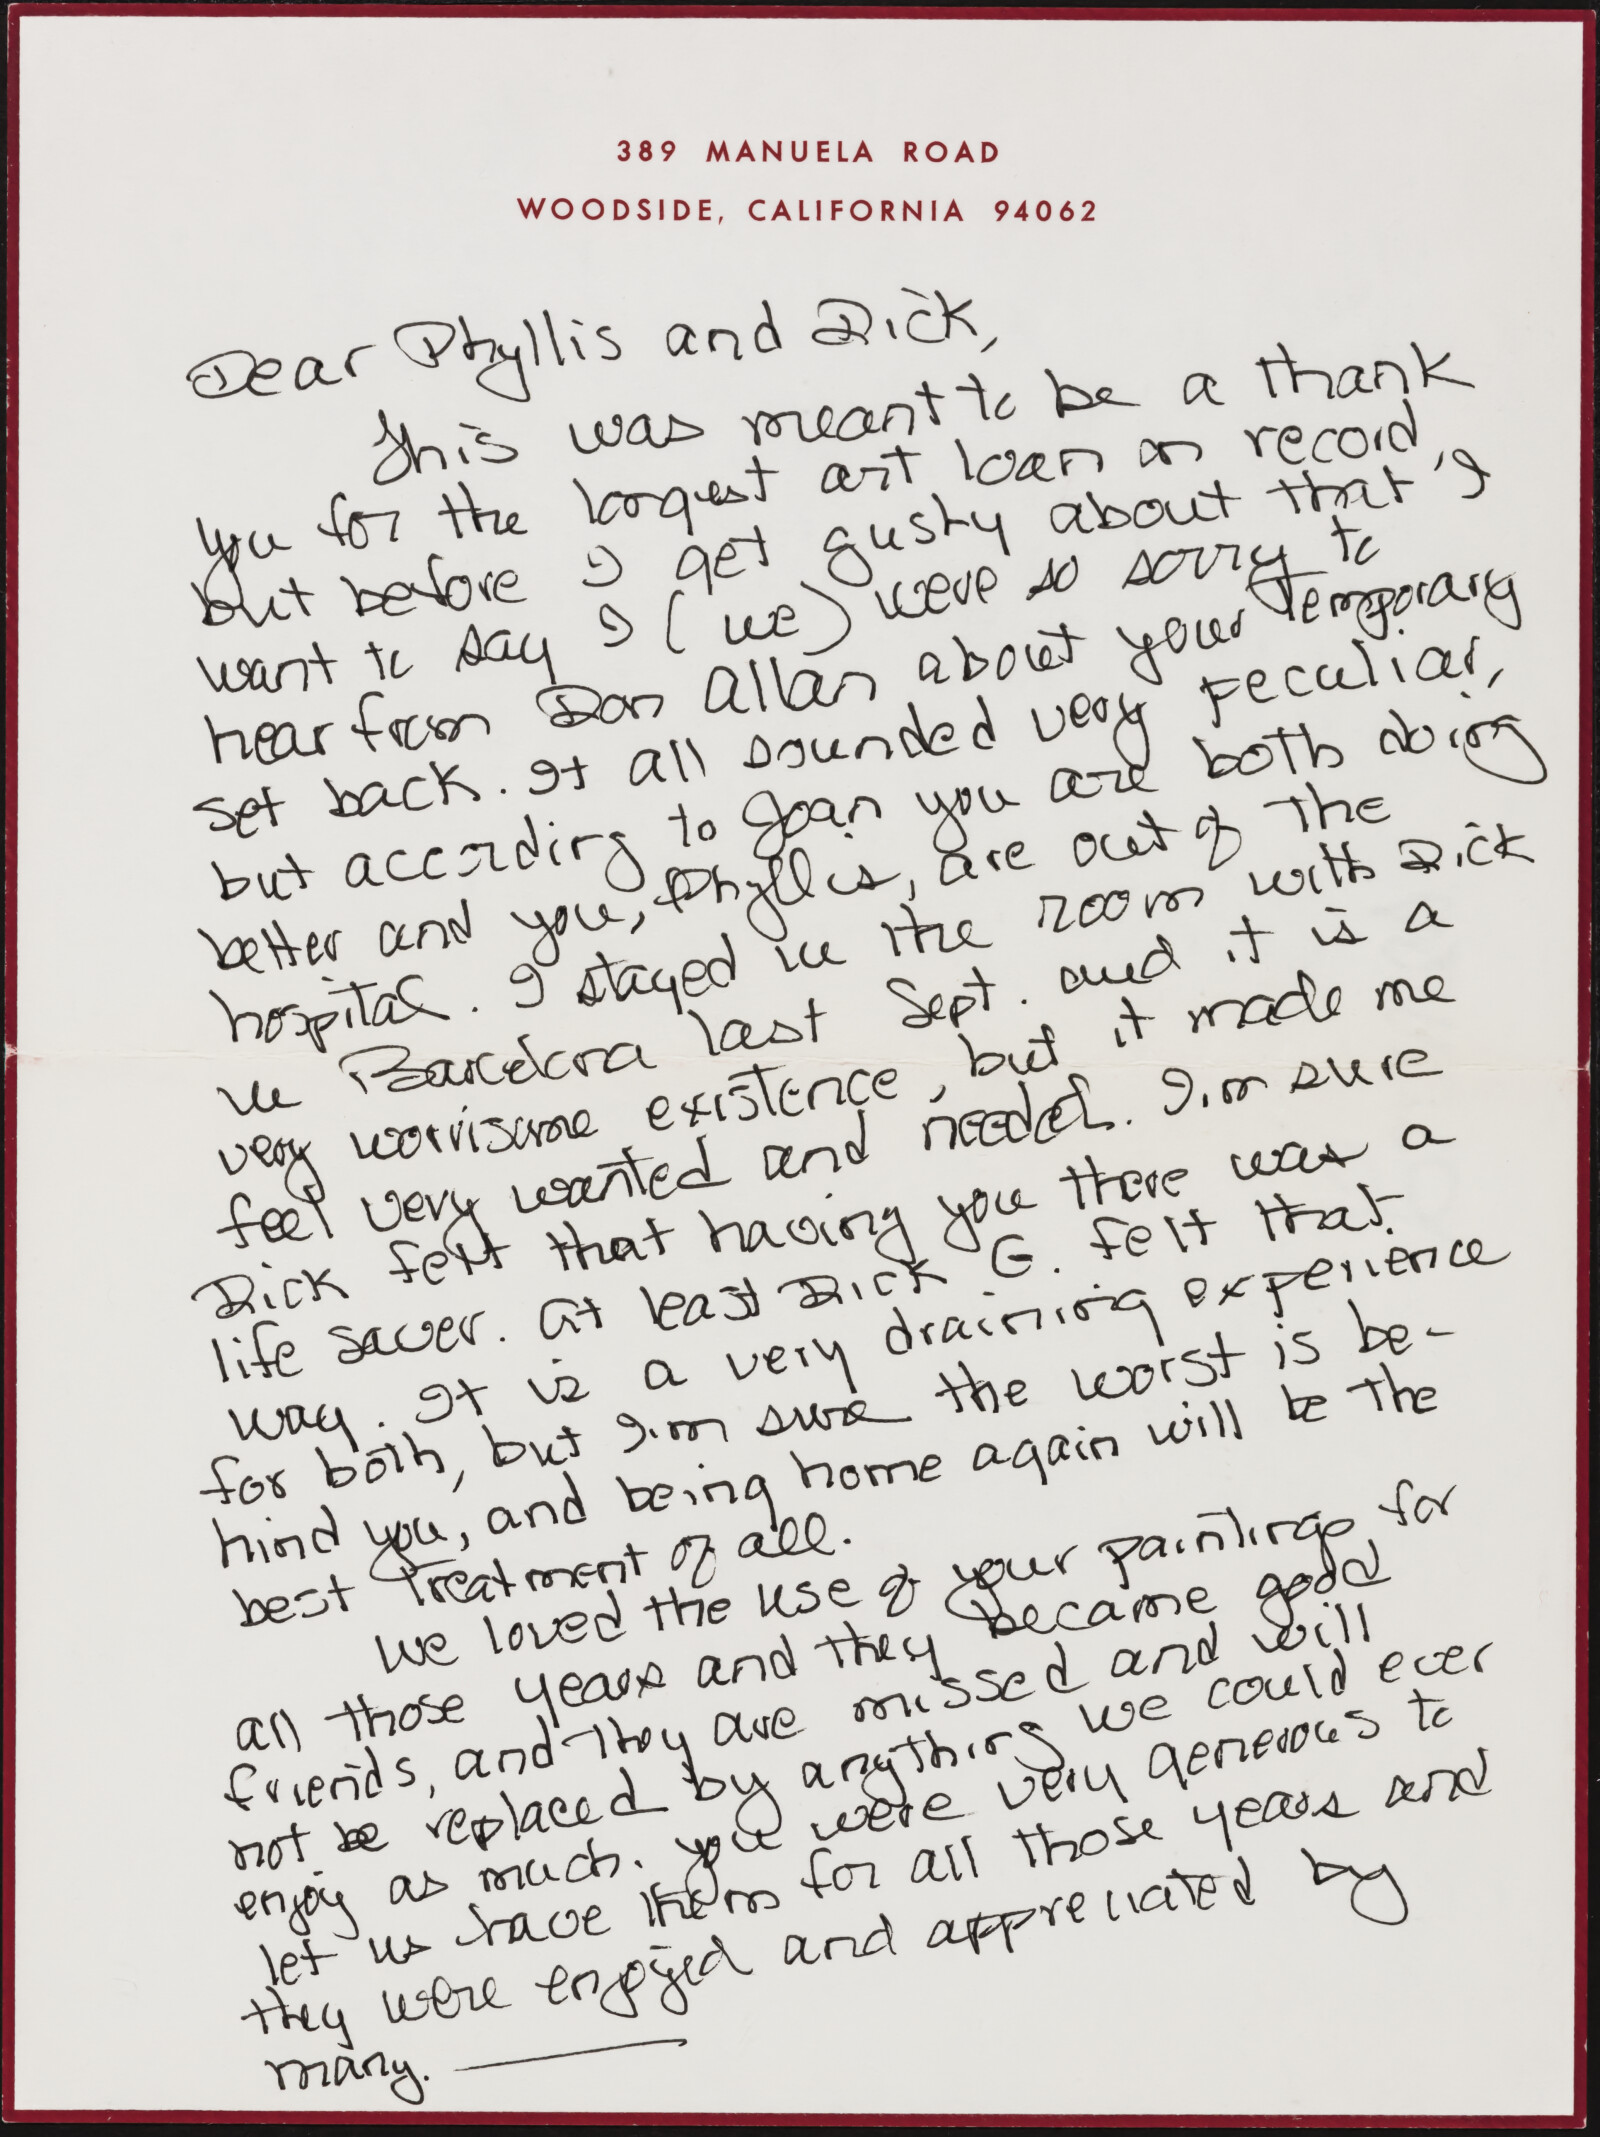 389 MANUELA ROAD
WOODSIDE, CALIFORNIA 94062
Dear Phyllis and Dick,
This was meant to be a thank
you for the longest art loan on record,
but before I get gushy about that I
want to say I (we) were so sorry to
hear from Don Allan about your temporary
set back. It all sounded very peculiar,
but according to Joan you are both doing
better and you, Phyllis, are out of the
hospital. I stayed in the room with Dick
in Barcelona last Sept. and it is a
very worrisome existence, but it made me
feel very wanted and needed. I'm sure
Dick felt that having you there was a
life saver. At least Dick G. felt that
way. It is a very draining experience
for both, but I'm sure the worst is be-
hind you, and being home again will be the
best treatment of all.
We loved the use of your paintings for
all those years and they became good
friends, and they are missed and will
not be replaced by anything we could ever
enjoy as much. You were very generous to
let us have them for all those years and
they were enjoyed and appreciated by
many.